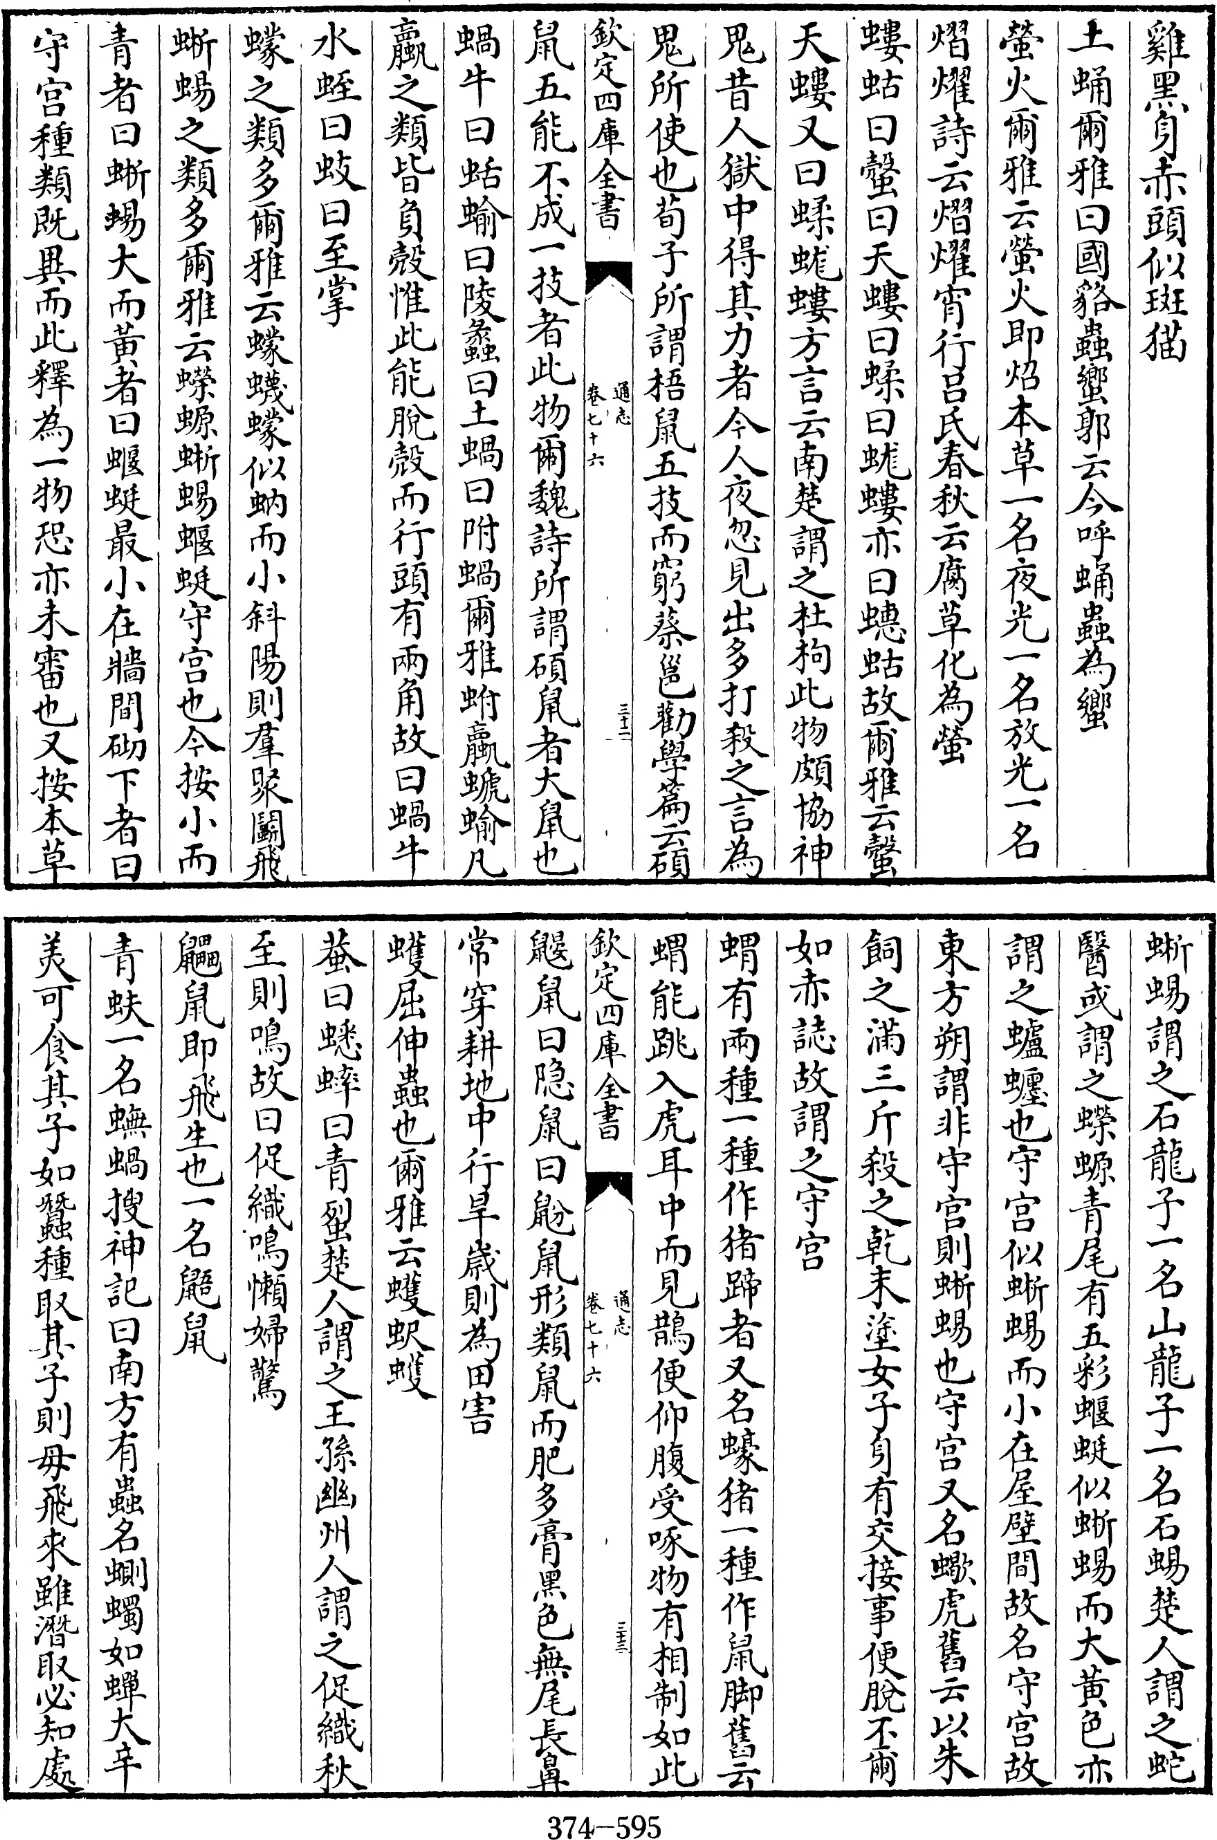 雞黑身赤頭似斑猫
土蛹爾雅曰國貉蟲蠁郭云今呼蛹蟲為蠁
螢火爾雅云螢火即炤本草一名夜光一名放光一名
熠燿詩云熠燿宵行吕氏春秋云腐草化為螢
螻蛄曰螜曰天螻曰蝚曰蛖螻亦曰蟪蛄故爾雅云螜
天螻又曰蝚蛖螻方言云南楚謂之杜狗此物頗協神
鬼昔人獄中得其力者今人夜忽見出多打殺之言為
鬼所使也荀子所謂梧鼠五技而窮蔡邕勸學篇云碩
欽定四庫全書
通志
卷七十六
三十二
鼠五能不成一技者此物爾魏詩所謂碩鼠者大鼠也
蝸牛曰蛞蝓曰陵蠡曰土蝸曰附蝸爾雅蚹蠃螔蝓凡
蠃之類皆負殼惟此能脫殼而行頭有兩角故曰蝸牛
水蛭曰蚑曰至掌
蠓之類多爾雅云蠓蠛蠓似蚋而小斜陽則羣聚鬭飛
蜥蜴之類多爾雅云蠑螈蜥蜴蝘蜓守宫也今按小而
青者曰蜥蜴大而黃者曰蝘蜓最小在牆間砌下者曰
守宫種類既異而此釋為一物恐亦未審也又按本草
蜥蜴謂之石龍子一名山龍子一名石蜴楚人謂之蛇
醫或謂之蠑螈青尾有五彩蝘蜓似蜥蜴而大黃色亦
謂之蠦𧓋也守宫似蜥蜴而小在屋壁間故名守宫故
東方朔謂非守宫則蜥蜴也守宫又名蠍虎舊云以朱
飼之滿三斤殺之乾末塗女子身有交接事便脫不爾
如赤誌故謂之守宫
蝟有兩種一種作猪蹄者又名蠔猪一種作鼠脚舊云
蝟能跳入虎耳中而見鵲便仰腹受啄物有相制如此
欽定四庫全書
通志
卷七十六
三十三
鼴鼠曰隐鼠曰鼢鼠形類鼠而肥多膏黑色無尾長鼻
常穿耕地中行旱歲則為田害
蠖屈伸蟲也爾雅云蠖蚇蠖
蛬曰蟋蟀曰青䗠楚人謂之王孫幽州人謂之促織秋
至則鳴故曰促織鳴懶婦驚
鼺鼠即飛生也一名鼯鼠
青蚨一名蟱蝸搜神記曰南方有蟲名蝲蠋如蟬大辛
美可食其子如蠶種取其子則母飛來雖潛取必知處
374-595